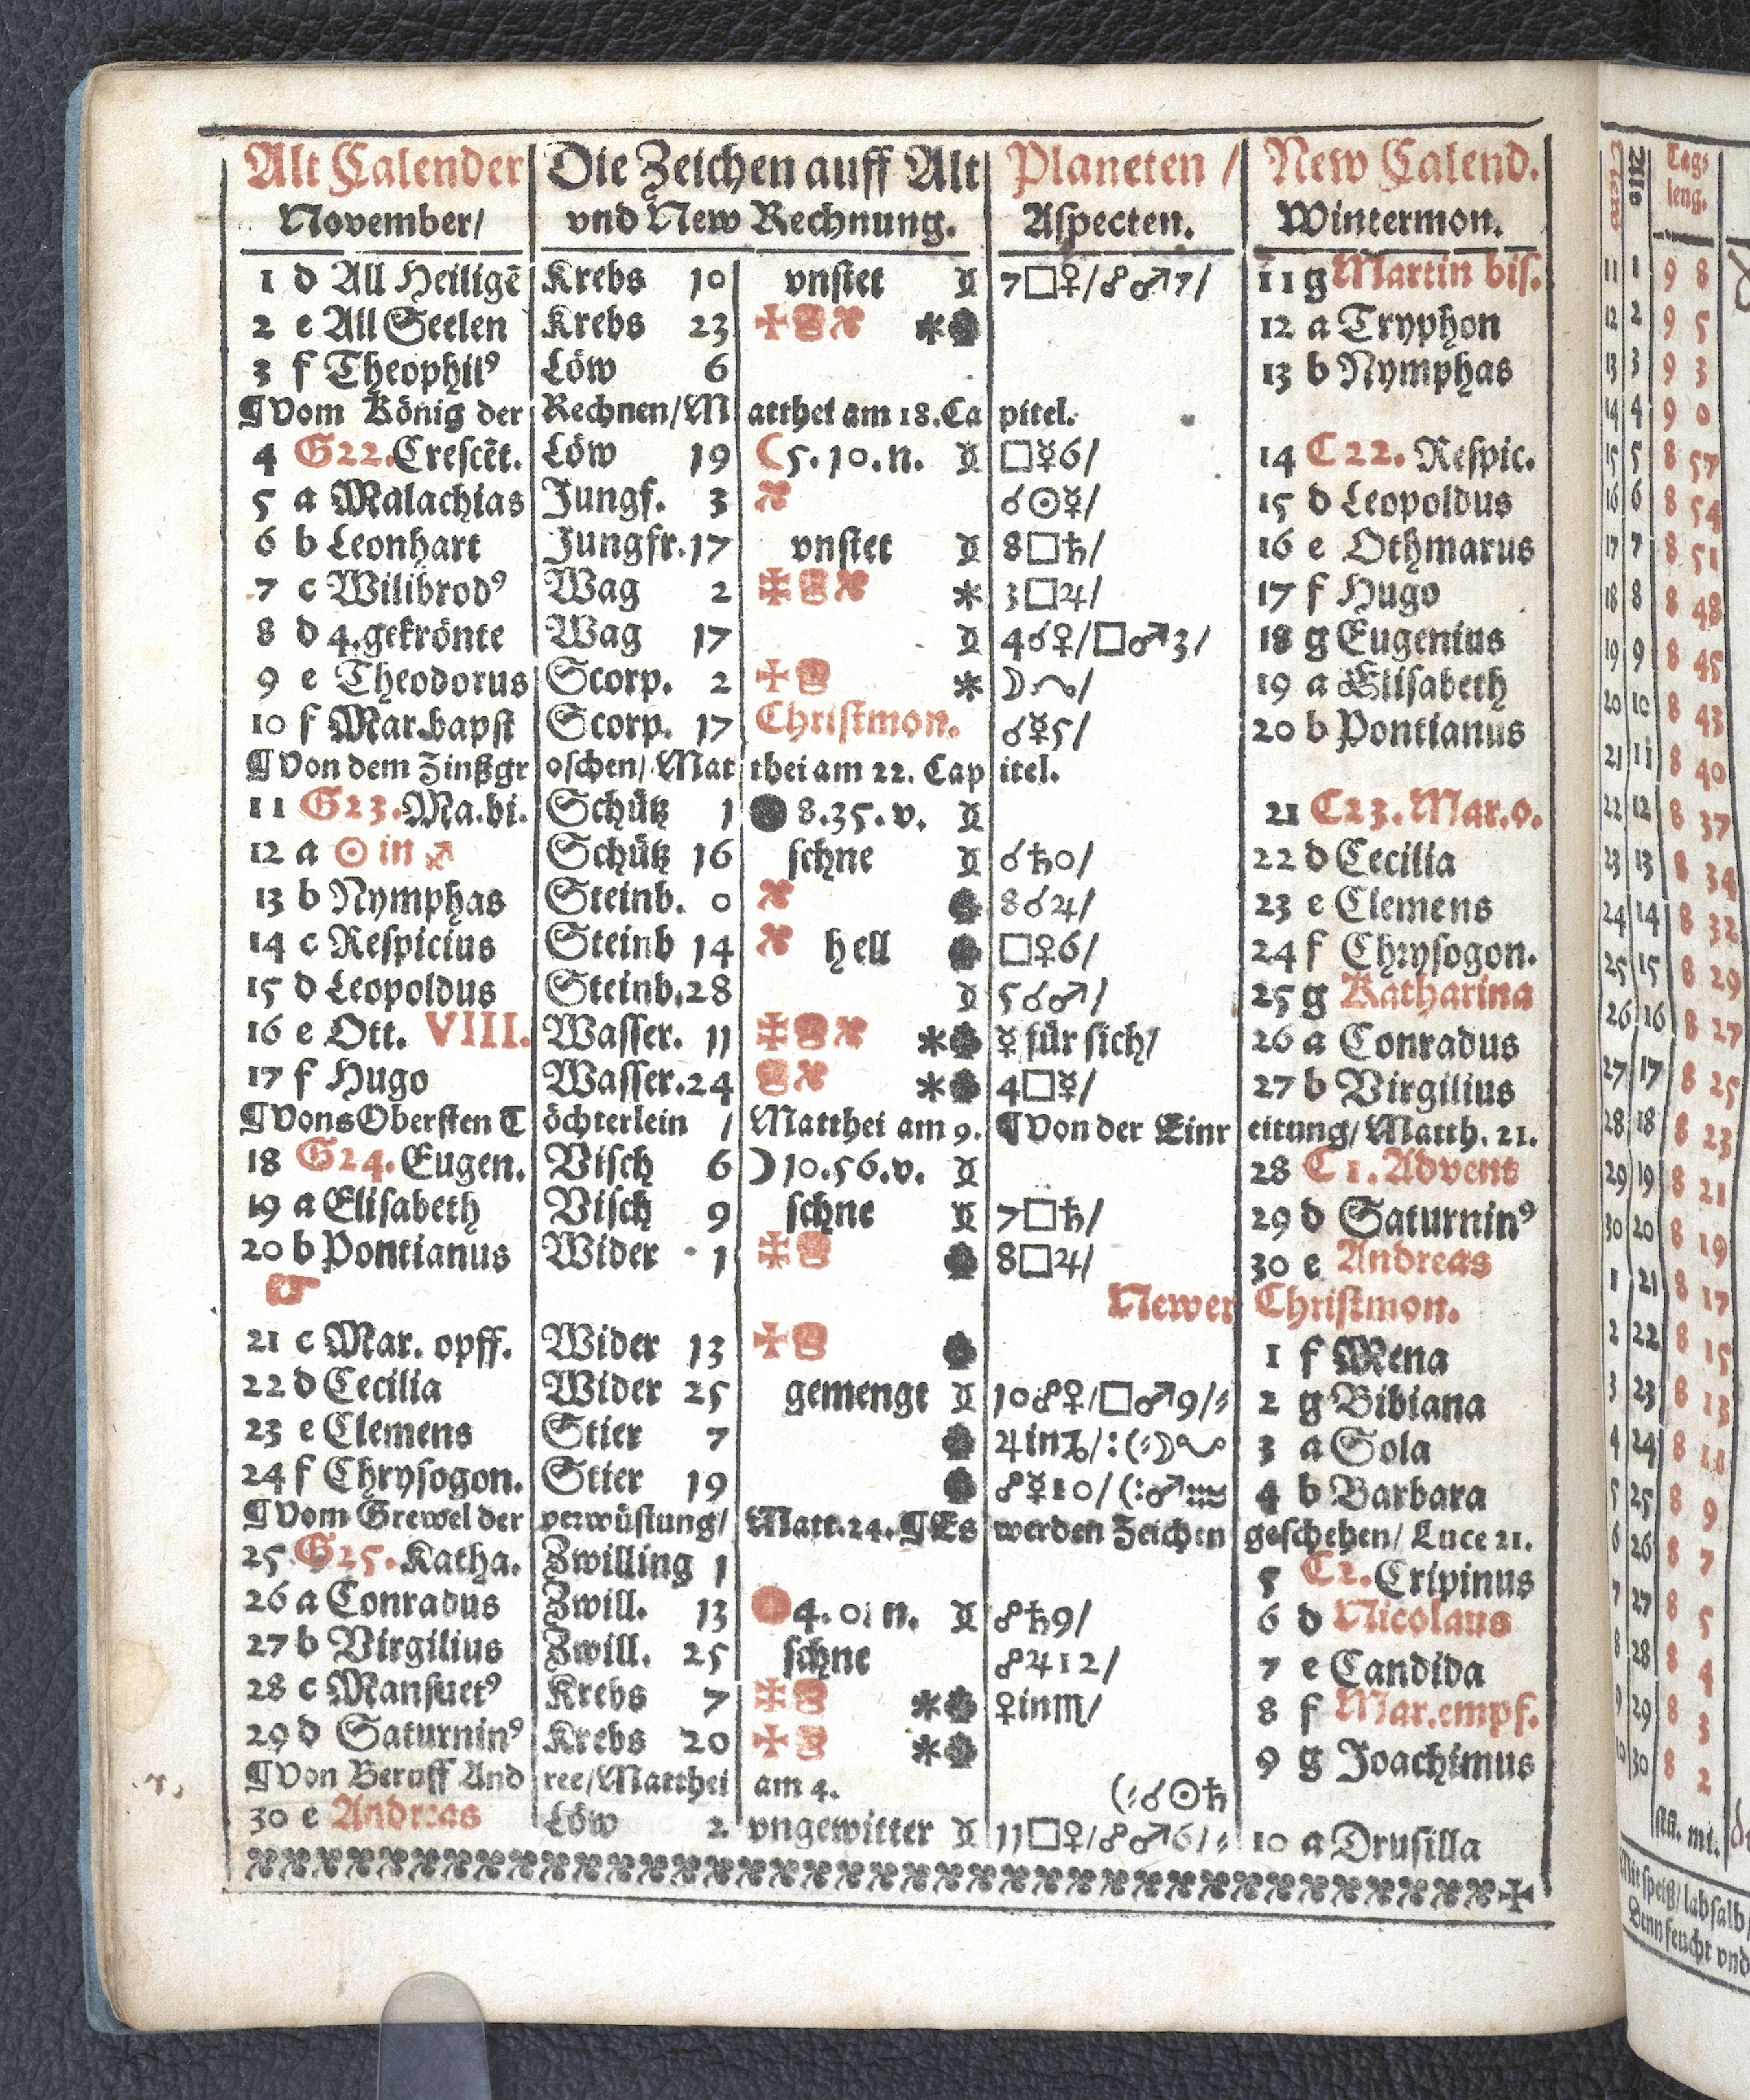 Alt Calender Die Zeichen auff Alt Planeten / New Calend.
November/ vnd New Rechnung. Aspecten. Wintermon.
1 d All Heiligẽ Krebs 10 vnstet 7□♀/☍♂7/ 11 g Martin bis.
2 e All Seelen Krebs 23 12 a Tryphon
3 f Theophilꝰ Löw 6 13 b Nymphas
¶Vom König der Rechnen/Matthei am 18.Capitel.
4 G22.Crescẽt. Löw 19 ☾5.10.n. □☿6/ 14 C22. Respic.
5 a Malachias Jungf. 3 ☌☉☿/ 15 d Leopoldus
6 b Leonhart Jungfr.17 vnstet 8□♄/ 16 e Othmarus
7 c Wilibrodꝰ Wag 2 * 3□♃/ 17 f Hugo
8 d 4.gekrönte Wag 17 4☌♀/□♂3/ 18 g Eugenius
9 e Theodorus Scorp. 2 * 19 a Elisabeth
10 f Mar.bapst Scorp. 17 Christmon. ☌☿5/ 20 b Pontianus
¶Von dem Zinßgroschen/Matthei am 22. Capitel.
11 G23.Ma.bi. Schütz 1 ●8.35.v. 21 C23.Mar.o.
12 a ☉ in ♐ Schütz 16 schne ☌♄0/ 22 d Cecilia
13 b Nymphas Steinb. 0 8☌♃/ 23 e Clemens
14 c Respicius Steinb 14 hell □♀6/ 24 f Chrysogon.
15 d Leopoldus Steinb.28 5☌♂/ 25 g Katharina
16 e Ott. VIII. Wasser. 11 * ☿ für sich/ 26 a Conradus
17 f Hugo Wasser.24 * 4□☿/ 27 b Virgilius
¶Vons Obersten Töchterlein / Matthei am 9. ¶Von der Einreitung/Matth. 21.
18 G24.Eugen. Visch 6 ☽10.56.v. 28 C1.Advent
19 a Elisabeth Visch 9 schne 7□♄/ 29 d Saturninꝰ
20 b Pontianus Wider 1 8□♃/ 30 e Andreas
☞ Newer Christmon.
21 c Mar. opff. Wider 13 1 f Mena
22 d Cecilia Wider 25 gemengt 10☍♀/□♂9/⸗ 2 g Bibiana
23 e Clemens Stier 7 ♃in♑/ 3 a Sola
24 f Chrysogon. Stier 19 ☍☿10/(:♂♒ 4 b Barbara
¶Vom Grewel der verwüstung/Matt.24. ¶Es werden Zeichen geschehen/ Luce 21.
25 G25.Katha. Zwilling 1 5 C2.Cripinus
26 a Conradus Zwill. 13 4.01 n. ☍♄9/ 6 d Nicolaus
27 b Virgilius Zwill. 25 schne ☍♃12/ 7 e Candida
28 c Mansuetꝰ Krebs 7 * ♀in♏/ 8 f Mar.empf.
29 d Saturninꝰ Krebs 20 * 9 g Joachimus
¶Von Beruff Andree/Matthei am 4. (⸗☌☉♄
30 e Andreas Löw 2 vngewitter 11□♀/☍♂6/⸗ 10 a Drusilla
Tags
leng.
11 1 9 8
12 2 9 5
13 3 9 3
14 4 9 0
15 5 8 57
16 6 8 54
17 7 8 51
18 8 8 48
19 9 8 45
20 10 8 43
21 11 8 40
22 12 8 37
23 13 8 34
24 14 8 32
25 15 8 29
26 16 8 27
27 17 8 25
28 18 8 23
29 19 8 21
30 20 8 19
1 21 8 17
2 22 8 15
3 23 8 13
4 24 8 11
5 25 8 9
6 26 8 7
7 27 8 5
8 28 8 4
9 29 8 3
10 30 8 2
mi.
Mit speiß/labsalb/
Denn feucht vnd